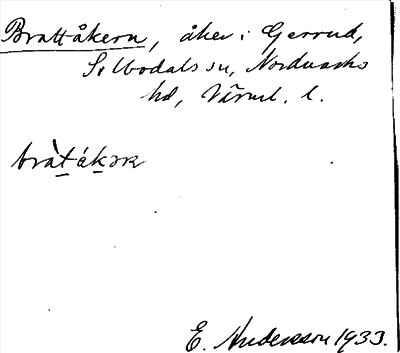 Brattåkern, åker i Gerrud,
Silbodals sn, Nordmarks
hd, Värml. l.
bràt́ákɔʀ
E. Anderson 1933.